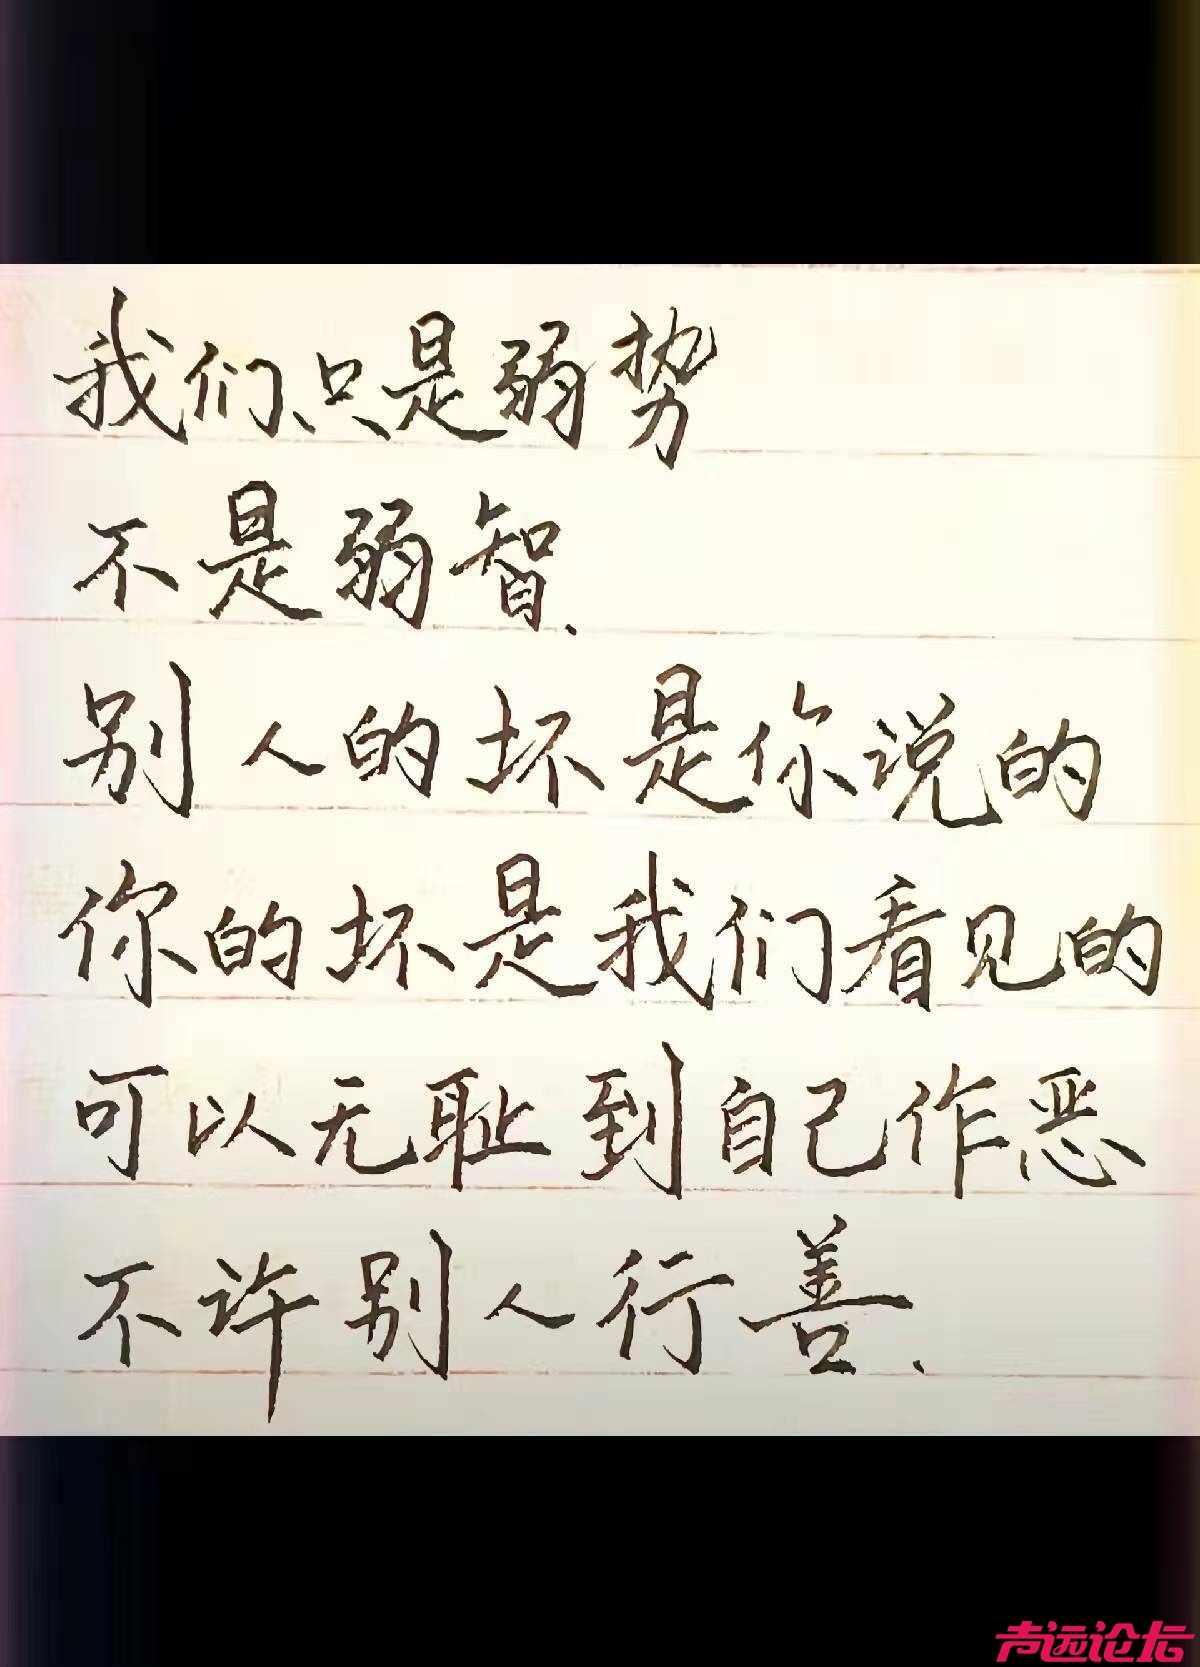 我们只是弱势
不是弱智.
别人的坏是你说的
你的坏是我们看见的
可以无耻到自己作恶
不许别人行善.
声远论坛